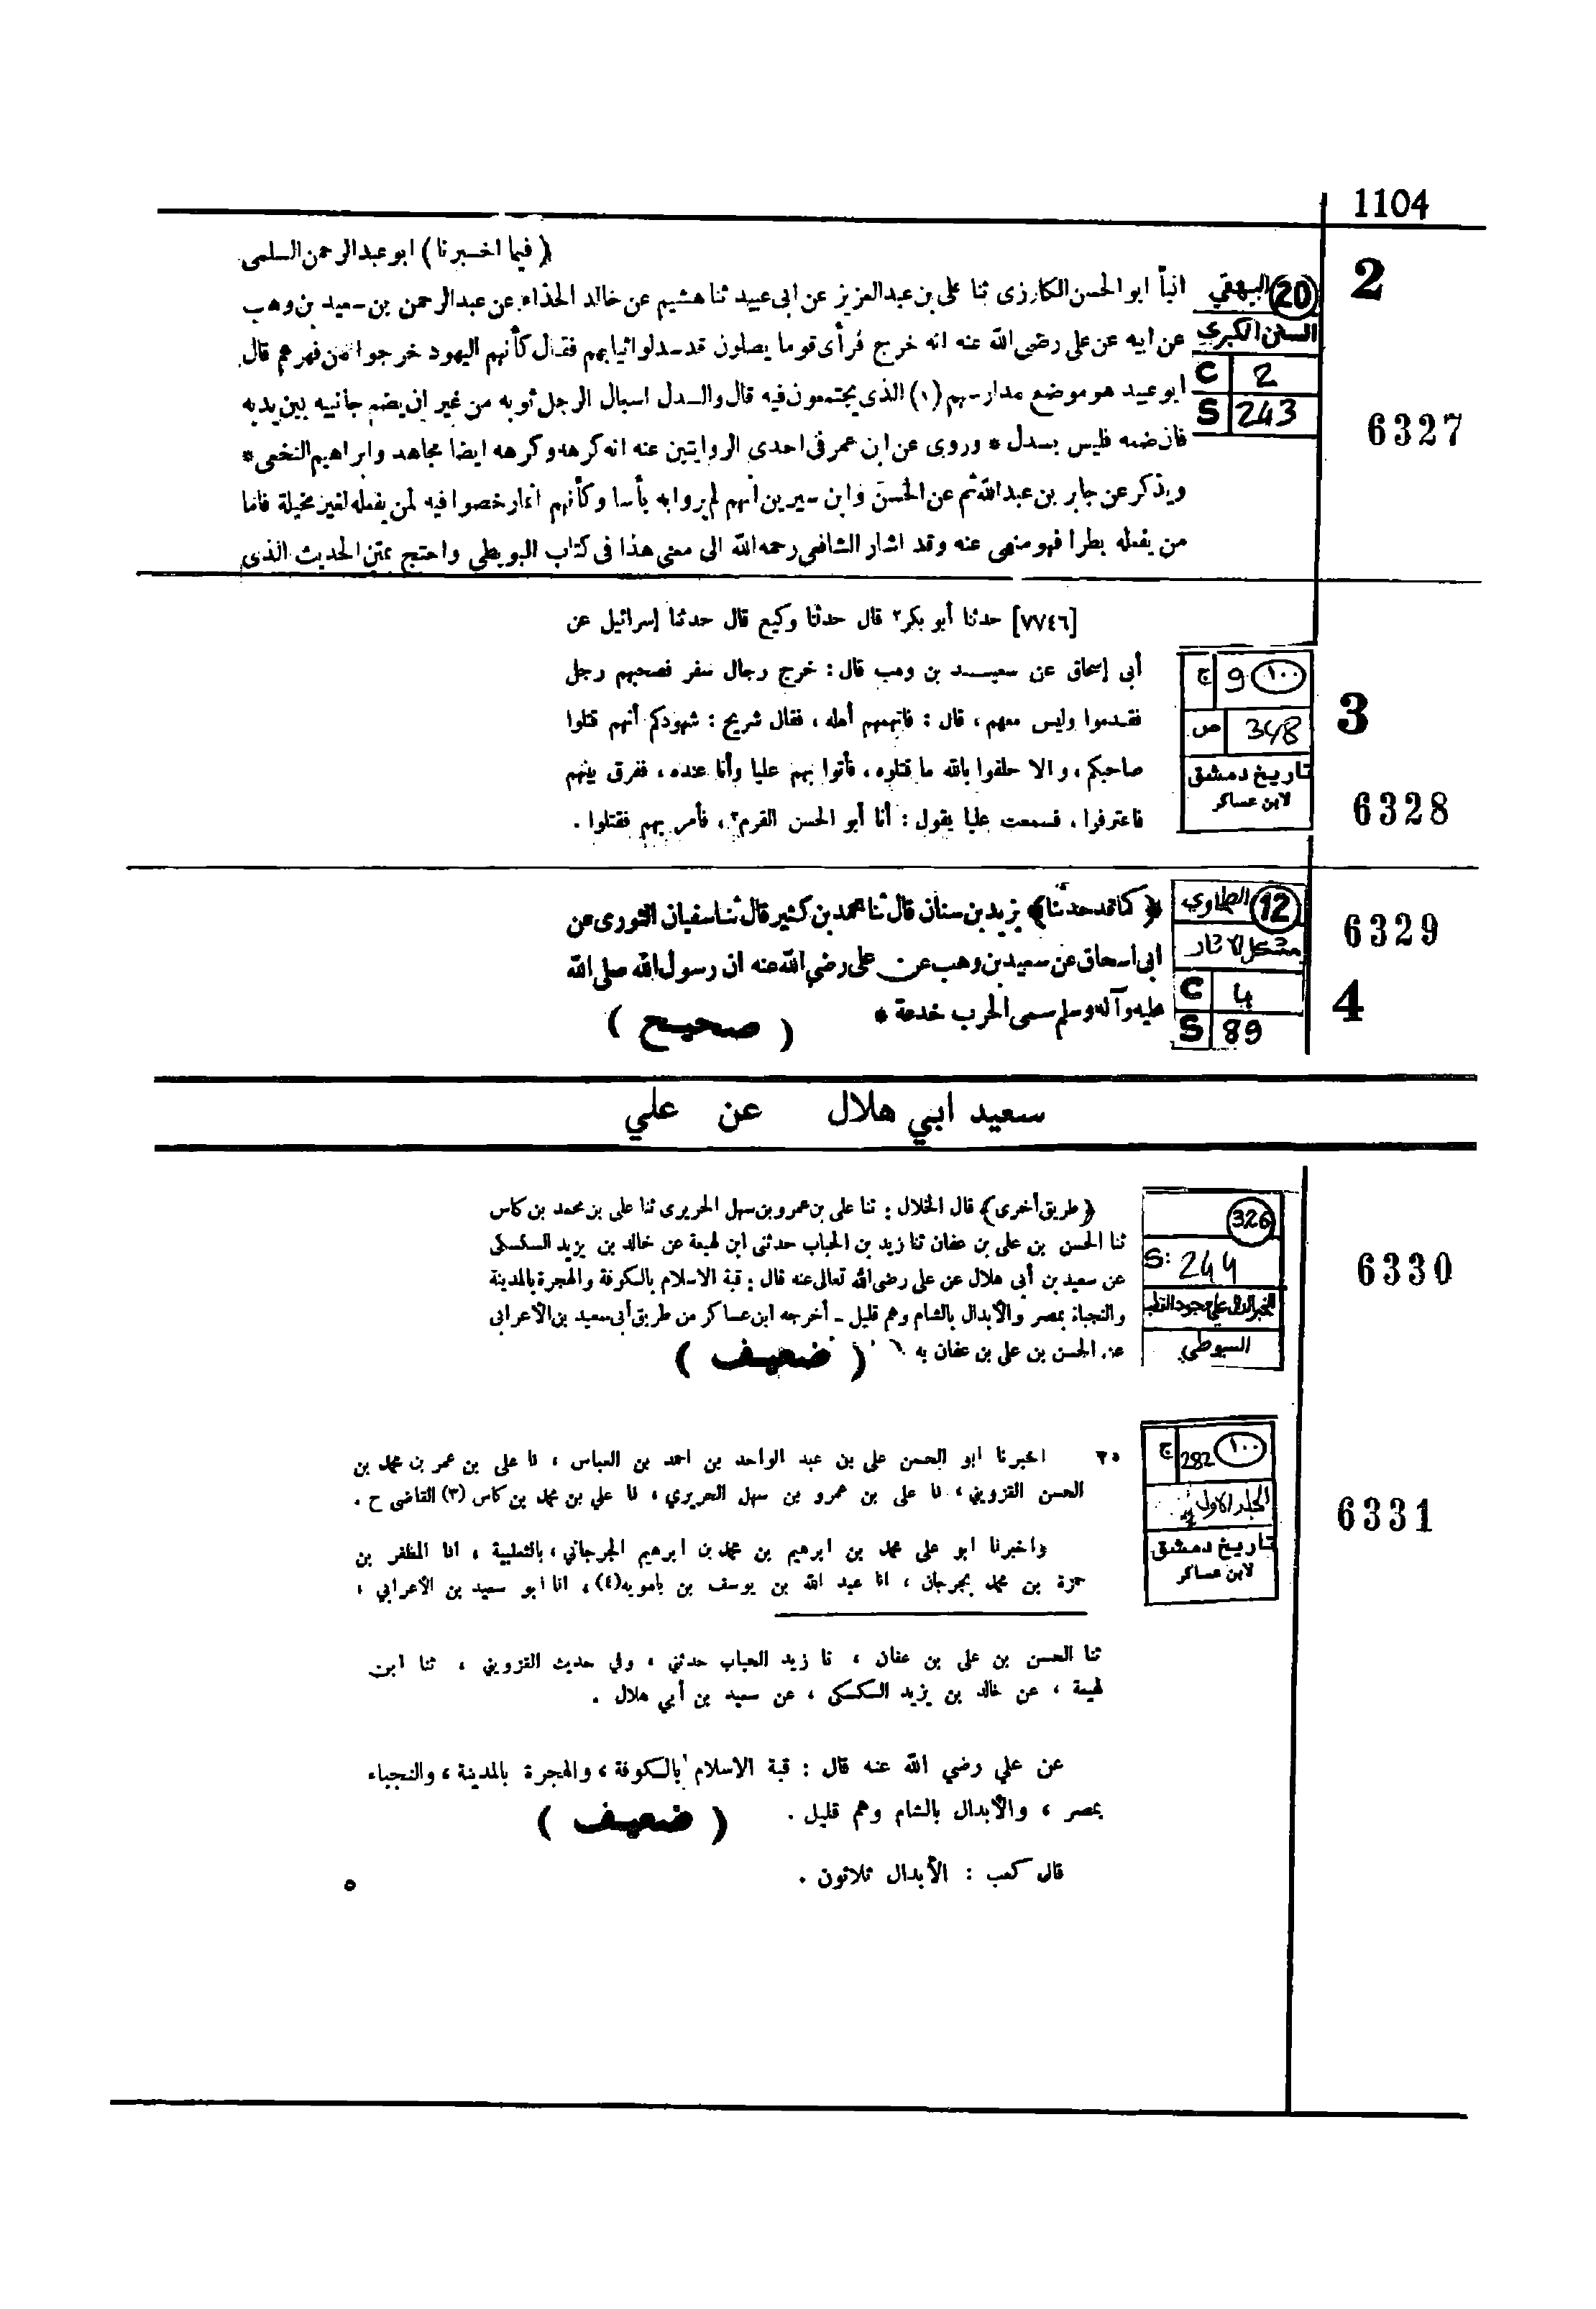 1104
2
( فيما اخبرنا ) ابو عبد الرحمن السلمى
20 البيهقي
السنن الكبري
C 2
S 243
6327
انبأ ابو الحسن الكارزى ثنا على بن عبد العزيز عن ابى عبيد ثنا هشيم عن خالد الحذاء عن عبد الرحمن بن سعيد بن وهب
عن ابيه عن على رضى الله عنه انه خرج فرأى قوما يصلون قد سدلوا ثيابهم فقال كأنهم اليهود خرجوا من فهرهم قال
ابو عبيد هو موضع مدارسهم (١) الذى يجتمعون فيه قال والسدل اسبال الرجل ثوبه من غير ان يضم جانبيه بين يديه
فان ضمه فليس بسدل * وروى عن ابن عمر فى احدى الروايتين عنه انه كرهه وكرهه ايضا مجاهد وابراهيم النخعى *
ويذكر عن جابر بن عبد الله ثم عن الحسن وابن سيرين انهم لم يروا به بأسا وكأنهم انما رخصوا فيه لمن يفعله لغير مخيلة فاما
من يفعله بطرا فهو منهى عنه وقد اشار الشافعى رحمه الله الى معنى هذا فى كتاب البويطى واحتج بمتن الحديث الذى
3
6328
١٠٠ 9 ج
348 ص
تاريخ دمشق
لابن عساكر
[٧٧٤٦] حدثنا أبو بكر٢ قال حدثنا وكيع قال حدثنا إسرائيل عن
أبى إسحاق عن سعيد بن وهب قال : خرج رجال سفر فصحبهم رجل
فقدموا وليس معهم ، قال : فاتهمهم أهله ، فقال شريح : شهودكم أنهم قتلوا
صاحبكم ، والا حلفوا بالله ما قتلوه ، فأتوا بهم عليا وأنا عنده ، ففرق بينهم
فاعترفوا ، فسمعت عليا يقول : أنا أبو الحسن القرم٣ ، فأمر بهم فقتلوا .
6329
4
12 الطحاوي
مشكل الآثار
C 4
S 89
﴿ كما قد حدثنا ﴾ يزيد بن سنان قال ثنا محمد بن كثير قال ثنا سفيان الثورى عن
ابى اسحاق عن سعيد بن وهب عن على رضي الله عنه ان رسول الله صلى الله
عليه وآله وسلم سمى الحرب خدعة *
( صحيح )
سعيد ابي هلال عن علي
6330
326
S: 244
الخبر الدال على وجود القطب
السيوطي
﴿ طريق أخرى ﴾ قال الخلال : ثنا على بن عمرو بن سهل الحريرى ثنا على بن محمد بن كاس
ثنا الحسن بن على بن عفان ثنا زيد بن الحباب حدثنى ابن لهيعة عن خالد بن يزيد السكسكى
عن سعيد بن أبى هلال عن على رضى الله تعالى عنه قال : قبة الاسلام بالكوفة والهجرة بالمدينة
والنجباء بمصر والأبدال بالشام وهم قليل ـ أخرجه ابن عساكر من طريق أبى سعيد بن الأعرابى
عن الحسن بن على بن عفان به
( ضعيف )
6331
١٠٠ 282 ج
المجلد الاول
تاريخ دمشق
لابن عساكر
٢٥ اخبرنا ابو الحسن على بن عبد الواحد بن احمد بن العباس ، نا على بن عمر بن محمد بن
الحسن القزويني ، نا على بن عمرو بن سهل الحريري ، نا علي بن محمد بن كاس (٣) القاضى ح .
واخبرنا ابو على محمد بن ابرهيم بن محمد بن ابرهيم الجرجاني ، بالثعلبية ، انا المظفر بن
حمزة بن محمد بجرجان ، انا عبد الله بن يوسف بن بامويه (٤) ، انا ابو سعيد بن الأعرابي ،
ثنا الحسن بن على بن عفان ، نا زيد الحباب حدثني ، وفي حديث القزويني ، ثنا ابن
لهيعة ، عن خالد بن يزيد السكسكى ، عن سعيد بن أبي هلال .
عن علي رضي الله عنه قال : قبة الاسلام بالكوفة ، والهجرة بالمدينة ، والنجباء
بمصر ، والأبدال بالشام وهم قليل .
( ضعيف )
قال كعب : الأبدال ثلاثون .
٥